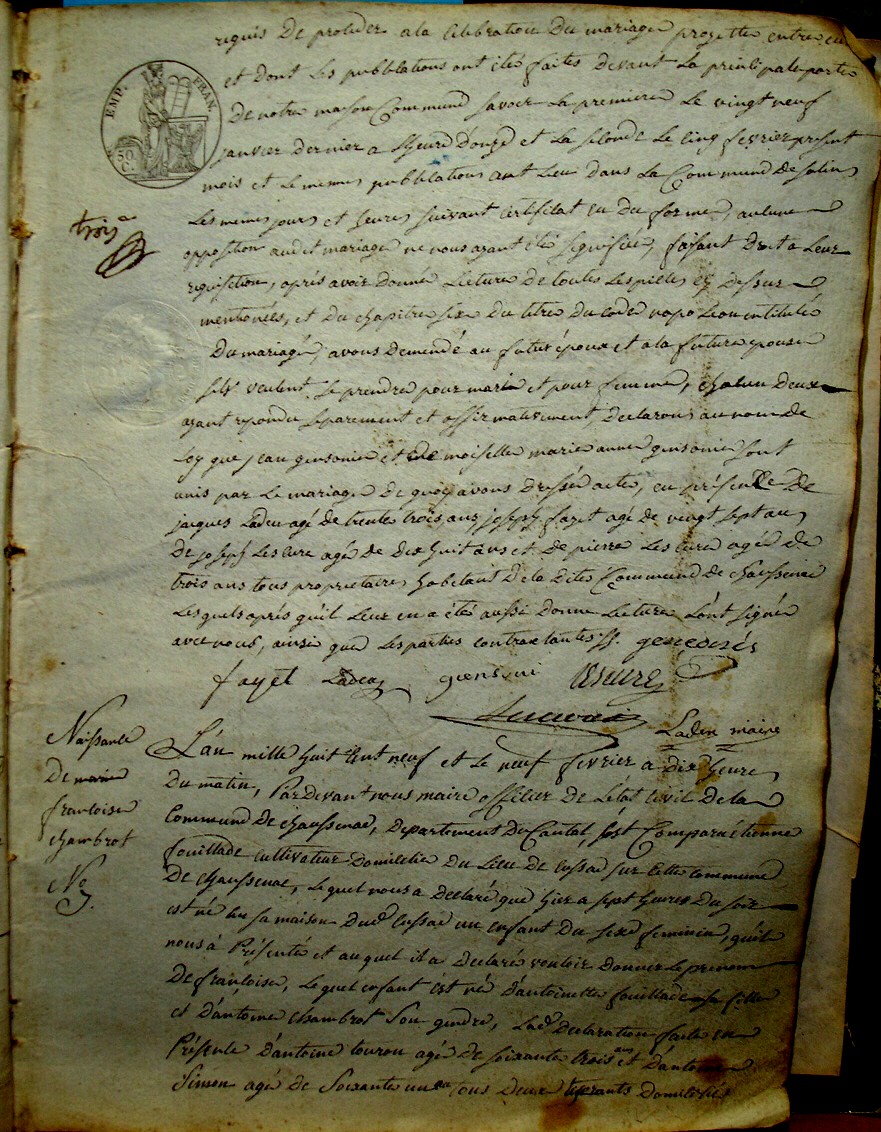 requis de proceder a la Celebration du mariage projetté entre eux
et dont les publications ont été faites devant la principale porte
de notre maison Commune savoir la premiere le vingt neuf
janvier dernier a heure d'onze et la seconde le cinq fevrier present
mois et le memes publications ont lieu dans la Commune de salins
EMP. FRAN.
50 C.
trois
Les memes jours et heures suivant certificat en du forme, aucune
opposition audit mariage ne nous ayant été signifiée, faisant droit a leur
requisition, aprés avoir donné lecture de toutes les pieces cy dessus
mentionées, et du chapitre six du titre du code napoleon intitulé
Du mariage, avons demendé au futur époux et a la future epouse
s'ils veulent se prendre pour mari et pour femme, chacun deux
ayant repondu separement et affirmativement, declarons au nom de
Loy que jean gensonie et de moiselle marie anne gensonie sont
unis par le mariage de quoy avons dressé acte, en présence de
jacques Ladeu agé de trente trois ans joseph fayet agé de vingt sept ans
De joseph Lescure agé de dix huit ans et de pierre Lescure agée de
trois ans tous proprietaires habitant de la dite Commune de chaussenac
Lesquels aprés qu'il leur en a été aussi donné lecture l'ont signés
avec nous, ainsi que les parties contractantes
fayet Ladeu gensoni Lescure
Ladeu maire
Naissance
De marie
francoise
chambrot
No
L'an mille huit cent neuf et le neuf fevrier a dix heure
du matin, Pardevant nous maire officier de l'état civil de la
Commune de chaussenac, departement du Cantal, s'est Comparu étienne
fouillade cultivateur domicilié du lieu de cussac sur cette commune
De chaussenac, lequel nous a declaré que hier a sept heures du soir
est né en sa maison dud cussac un enfant du sexe feminin, qu'il
nous à Présenté et auquel il a declaré vouloir donner le prenom
De francoise, lequel enfant est né d'antoinette fouillade sa fille
et d'antoine chambrot son gendre, Lad declaration faite en
Présence d'antoine touron agée de soixante trois ans et d'antoine
Simon agé de Soixante un an tous deux domiciliés